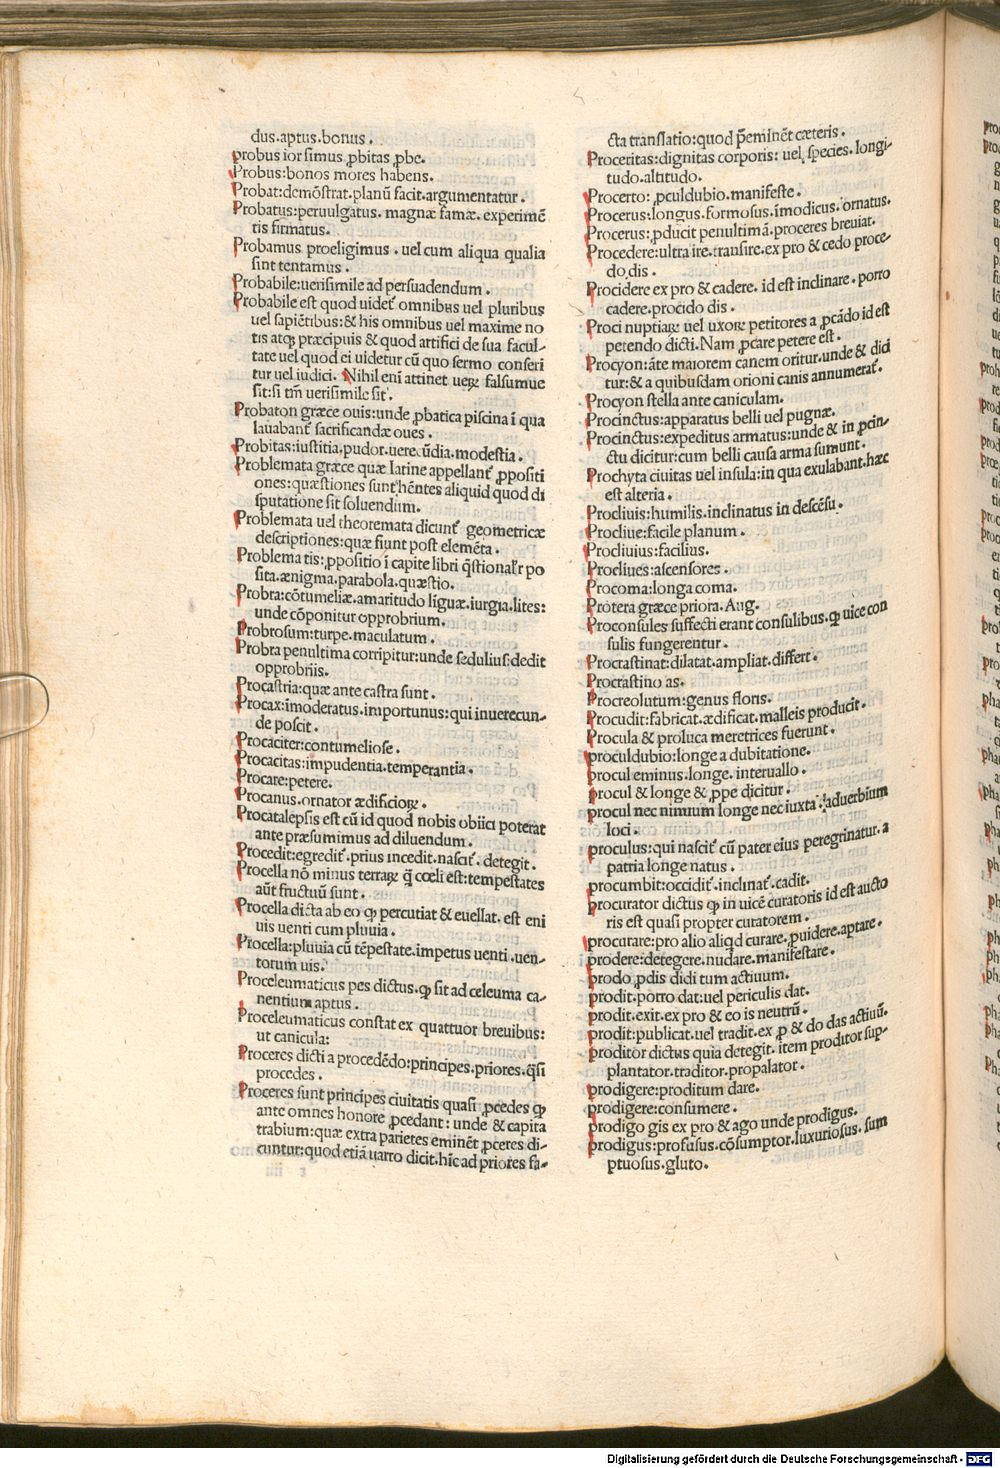 dus.aptus.bonus.
probus ior simus ꝓbitas ꝓbe.
Probus:bonos mores habens.
Probat:demõstrat.planũ facit.argumentatur.
Probatus:peruulgatus. magnæ famæ. experimẽ
tis firmatus.
Probamus proeligimus. uel cum aliqua qualia
sint tentamus.
Probabile:uerisimile ad persuadendum.
Probabile est quod uidet᷒ omnibus uel pluribus
uel sapiẽtibus:& his omnibus uel maxime no
tis atqꝫ præcipuis & quod artifici de sua facul-
tate uel quod ei uidetur cũ quo sermo conseri
tur uel iudici. Nihil eni attinet ueꝝ falsumue
sit:si tm̃ uerisimile sit.
Probaton græce ouis:unde ꝓbatica piscina ĩ qua
lauabant᷒ sacrificandæ oues.
Probitas:iustitia.pudor.uerecũdia.modestia.
Problemata græce quæ latine appellant᷒ ꝓpositi
ones:quæstiones sunt hẽntes aliquid quod di
sputatione sit soluendum.
Problemata uel theoremata dicunt᷒ geometricæ
descriptiones:quæ fiunt post elemẽta.
Problema tis:ꝓpositio ĩ capite libri q̃stional'r po
sita.ænigma.parabola.quæstio.
Probra:cõtumeliæ.amaritudo liguæ.iurgia.lites:
unde cõponitur opprobrium.
Probrosum:turpe.maculatum.
Probra penultima corripitur:unde sedulius:dedit
opprobriis.
Procastria:quæ ante castra sunt.
Procax:imoderatus.importunus:qui inuerecun-
de poscit.
Procaciter:contumeliose.
Procacitas:impudentia.temperantia.
Procare:petere.
Procanus.ornator ædificioꝝ.
Procatalepsis est cũ id quod nobis obiici poterat
ante præsumimus ad diluendum.
Procedit:egredit᷒.prius incedit.nascit᷒.detegit.
Procella nõ minus terraꝝ q̃ cœli est:tempestates
aũt fructuũ sunt.
Procella dicta ab eo ꝙ percutiat & euellat. est eni
uis uenti cum pluuia.
Procella:pluuia cũ tẽpestate.impetus uenti.uen-
torum uis.
Proceleumaticus pes dictus.ꝙ sit ad celeuma ca-
nentium aptus.
Proceleumaticus constat ex quattuor breuibus:
ut canicula:
Proceres dicti a procedẽdo:principes.priores.q̃si
procedes.
Proceres sunt principes ciuitatis quasi ꝓcedes ꝙ
ante omnes honore ꝓcedant: unde & capita
trabium:quæ extra parietes eminẽt ꝓceres di-
cuntur:quod etiã uarro dicit.hĩc ad priores fa-
cta translatio:quod p̃eminẽt cæteris.
Proceritas:dignitas corporis: uel species.longi-
tudo.altitudo.
Procerto: ꝓculdubio.manifeste.
Procerus:longus.formosus.ĩmodicus.ornatus.
Procerus:ꝓducit penultimã.proceres breuiat.
Procedere:ultra ire.transire.ex pro & cedo proce-
do dis.
Procidere ex pro & cadere. id est inclinare. porro
cadere.procido dis.
Proci nuptiaꝝ uel uxoꝝ petitores a ꝓcãdo id est
petendo dicti.Nam ꝓcare petere est.
Procyon:ãte maiorem canem oritur.unde & dici
tur:& a quibusdam orioni canis annumerat᷒.
Procyon stella ante caniculam.
Procinctus:apparatus belli uel pugnæ.
Procinctus:expeditus armatus:unde & in ꝓcin-
ctu dicitur:cum belli causa arma sumunt.
Prochyta ciuitas uel insula:in qua exulabant.hæc
est alteria.
Procliuis:humilis.inclinatus in descẽsu.
Procliue:facile planum.
Procliuius:facilius.
Procliues:ascensores.
Procoma:longa coma.
Protera græce priora. Aug.
Proconsules suffecti erant consulibus.ꝙ uice con
sulis fungerentur.
Procrastinat:dilatat.ampliat.differt.
Procrastino as.
Procreolutum:genus floris.
Procudit:fabricat.ædificat.malleis producit.
Procula & proluca meretrices fuerunt.
proculdubio:longe a dubitatione.
procul eminus.longe. interuallo.
procul & longe & ꝓpe dicitur.
procul nec nimium longe nec iuxta:aduerbium
loci.
proculus:qui nascit᷒ cũ pater eius peregrinatur.a
patria longe natus.
procumbit:occidit᷒.inclinat᷒.cadit.
procurator dictus ꝙ in uicẽ curatoris id est aucto
ris est quasi propter curatorem.
procurare:pro alio aliqd curare.ꝓuidere.aptare.
prodere:detegere.nudare.manifestare.
prodo ꝓdis didi tum actiuum.
prodit.porro dat:uel periculis dat.
prodit.exit.ex pro & eo is neutrũ.
prodit:publicat.uel tradit.ex ꝓ & do das actiuũ.
proditor dictus quia detegit. item proditor sup-
plantator.traditor.propalator.
prodigere:proditum dare.
prodigere:consumere.
prodigo gis ex pro & ago unde prodigus.
prodigus:profusus.cõsumptor.luxuriosus.sum
ptuosus.gluto.
Digitalisierung gefördert durch die Deutsche Forschungsgemeinschaft - DFG